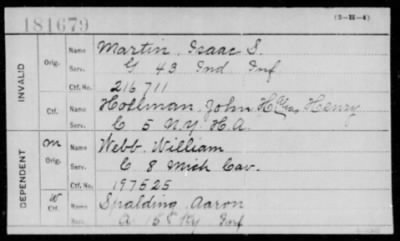 181679
(3-H-4)
INVALID
Orig. Name Martin, Isaac S.
Serv. G 43 Ind. Inf
Ctf. No. 216711
Ctf. Name Hollman, John H Henry
Serv. C 5 N.Y. H.A.
DEPENDENT
m Orig. Name Webb, William
Serv. C 8 Mich Cav.
Ctf. No. 197525
W Ctf. Name Spalding, Aaron
Serv. A. 15 Ky Inf